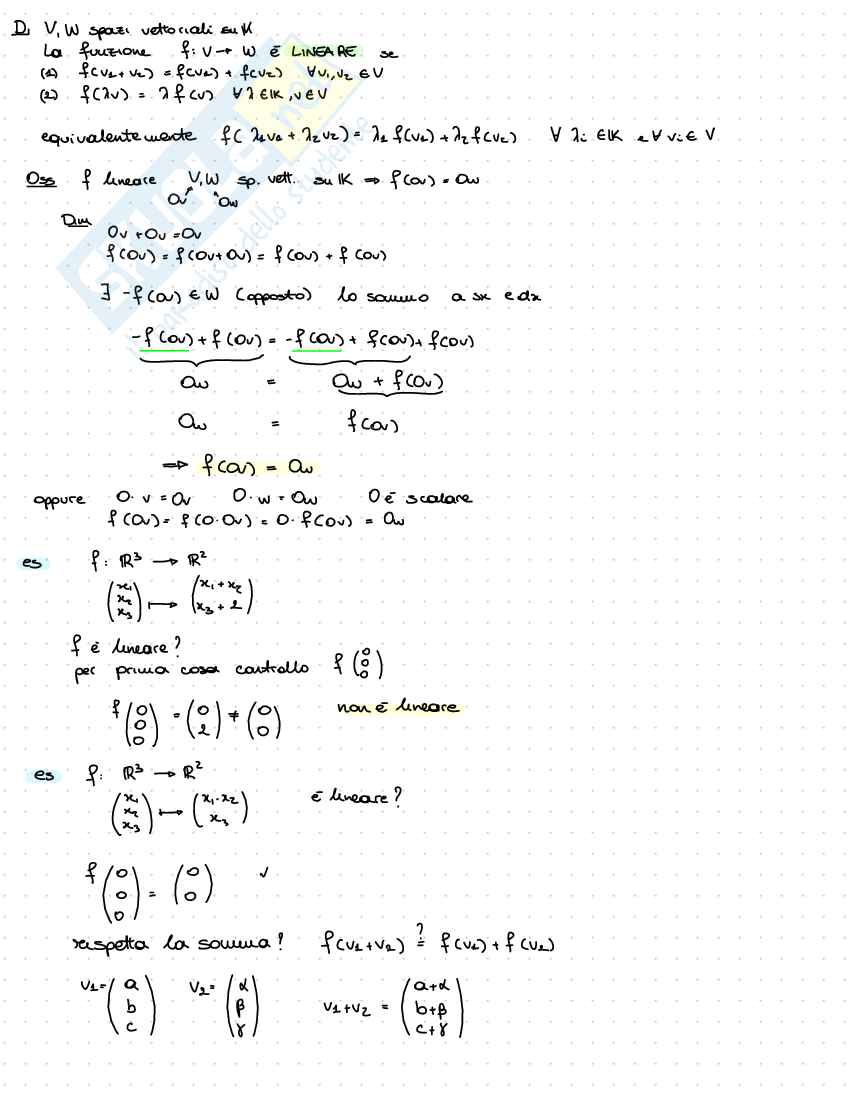 D, V, W spazi vettoriali su K
La funzione f: V → W è LINEARE se
(1) f(v1+v2) = f(v1) + f(v2) ∀v1,v2 ∈V
(2) f(λv) = λ f(v) ∀ λ ∈ IK, v∈V
equivalentemente f( λ1v1 + λ2v2) = λ1 f(v1) + λ2 f(v2) ∀ λi ∈IK e ∀ vi ∈ V
Oss f lineare V,W sp. vett. su IK ⇒ f(0v) = 0w
0v 0w
Dim
0v + 0v = 0v
f(0v) = f(0v+0v) = f(0v) + f(0v)
∃ -f(0v) ∈ W (opposto) lo sommo a sx e dx
-f(0v) + f(0v) = -f(0v) + f(0v) + f(0v)
0w = 0w + f(0v)
0w = f(0v)
⇒ f(0v) = 0w
oppure 0· v = 0v 0· w = 0w 0 è scalare
f(0v) = f(0·0v) = 0· f(0v) = 0w
es f: IR³ → IR²
(x1 x2 x3) ↦ (x1 + x2 x3 + 2)
f è lineare?
per prima cosa controllo f (0 0 0)
f (0 0 0) = (0 2) ≠ (0 0) non è lineare
es f: IR³ → IR²
(x1 x2 x3) ↦ (x1·x2 x3) è lineare?
f (0 0 0) = (0 0) ✓
rispetta la somma? f(v1+v2) ?= f(v1) + f(v2)
v1= (a b c) v2= (α β γ) v1+v2 = (a+α b+β c+γ)